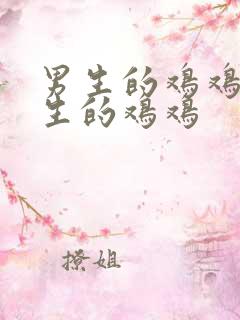 男生的鸡鸡
生的鸡鸡
撩姐